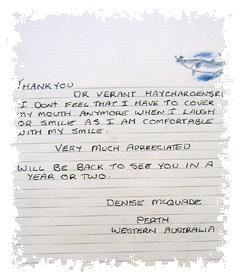 THANKYOU
DR VERANT HAYCHAROENSRI
I DONT FEEL THAT I HAVE TO COVER
MY MOUTH ANYMORE WHEN I LAUGH
OR SMILE AS I AM COMFORTABLE
WITH MY SMILE.
VERY MUCH APPRECIATED
WILL BE BACK TO SEE YOU IN A
YEAR OR TWO.
DENISE MCQUADE
PERTH
WESTERN AUSTRALIA